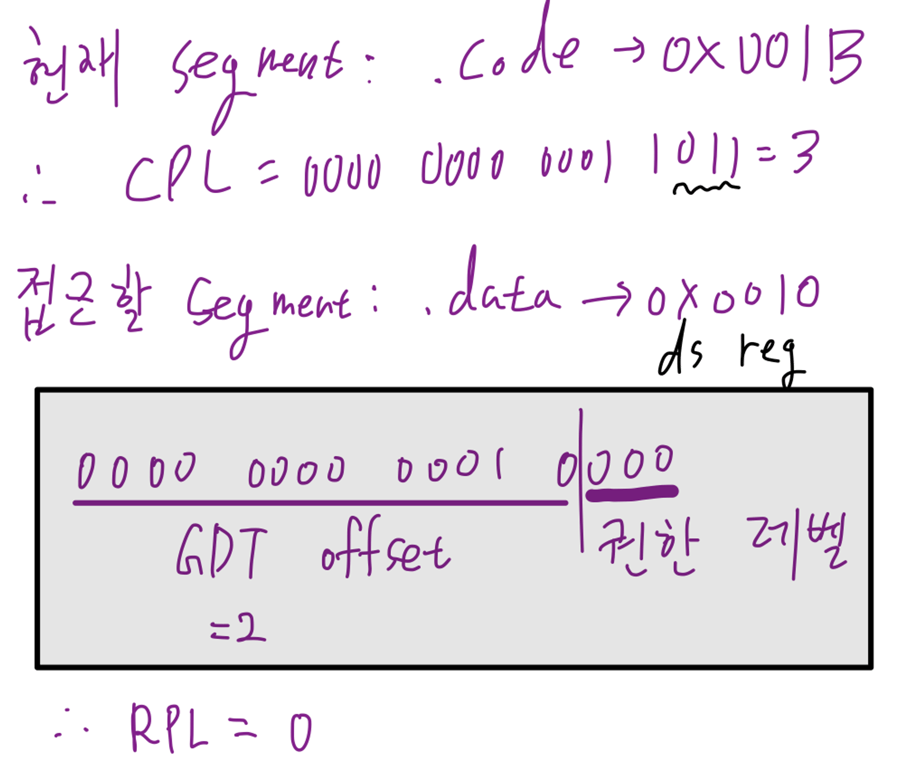 현재 segment: .code → 0x001B
∴ CPL = 0000 0000 0001 1011 = 3
접근할 segment: .data → 0x0010
ds reg
0000 0000 0001 0|000
GDT offset 권한 레벨
=2
∴ RPL = 0